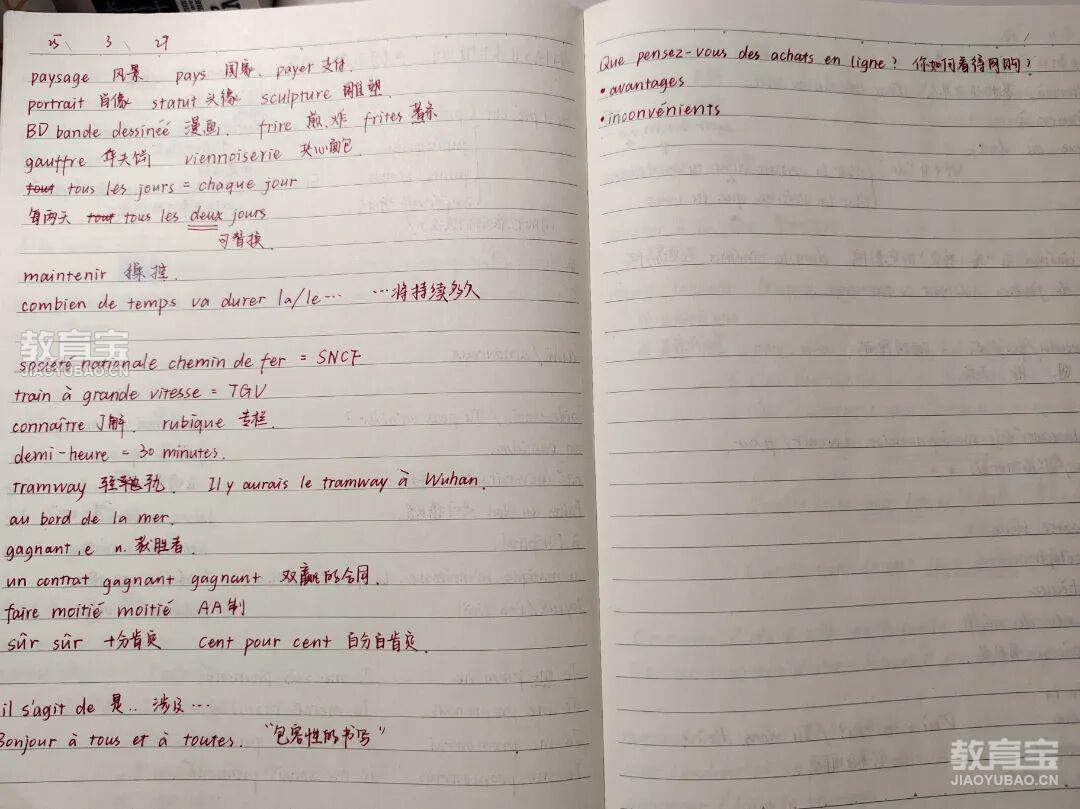 25 \ 3 \ 29
paysage 风景 pays 国家. payer 支付.
portrait 肖像 statut 头像 sculpture 雕塑.
BD bande dessinée 漫画. frire 煎、炸 frites 薯条
gauffre 华夫饼 viennoiserie 夹心面包
tout tous les jours = chaque jour
每两天 tout tous les deux jours
可替换.
maintenir 操控.
combien de temps va durer la/le… …将持续多久
société nationale chemin de fer = SNCF
train à grande vitesse = TGV
connaître 了解. rubique 专栏.
demi-heure = 30 minutes.
tramway 轻轨. Il y aurais le tramway à Wuhan.
au bord de la mer.
gagnant, e n. 获胜者.
un contrat gagnant gagnant 双赢的合同.
faire moitié moitié AA制
sûr sûr 十分肯定 cent pour cent 百分百肯定.
il s'agit de 是.. 涉及…
Bonjour à tous et à toutes. "包容性的书写"
Que pensez-vous des achats en ligne? 你如何看待网购?
• avantages
• inconvénients
教育宝
JIAOYUBAO.CN
教育宝
JIAOYUBAO.CN